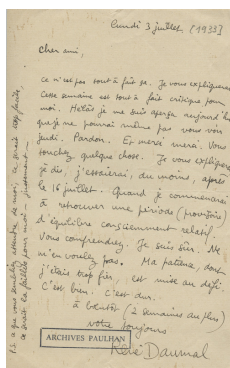 Lundi 3 juillet [1933]
Cher ami,
Ce n'est pas tout à fait ça. Je vous expliquerai.
Cette semaine est tout à fait critique pour
moi. Hélas je me suis aperçu aujourd'hui
que je ne pourrai même pas vous voir
jeudi. Pardon. Et merci merci. Vous
touchez quelque chose. Je vous expliquerai
je dis, j'essaierai, du moins, après
le 16 juillet. Quand je commencerai
à retrouver une période (provisoire)
d'équilibre consciemment relatif
vous comprendrez. Je suis sûr. Ne
m'en voulez pas. Ma patience, dont
j'étais trop fier, est mise au défi
C'est bien. C'est dur.
à bientôt (2 semaines au plus)
votre toujours
René Daumal
ARCHIVES PAULHAN
ce que vous semblez attendre de moi, ce serait trop facile,
ce serait la faillite pour moi justement